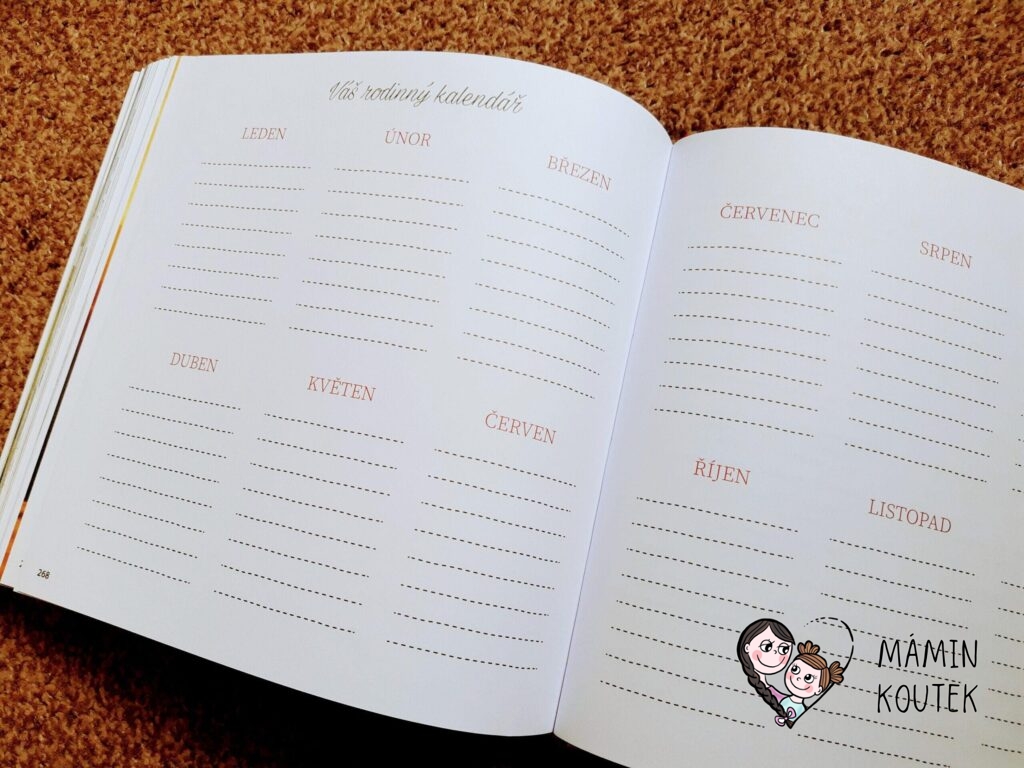 Váš rodinný kalendář
LEDEN
ÚNOR
BŘEZEN
DUBEN
KVĚTEN
ČERVEN
268
ČERVENEC
SRPEN
ŘÍJEN
LISTOPAD
MÁMIN
KOUTEK